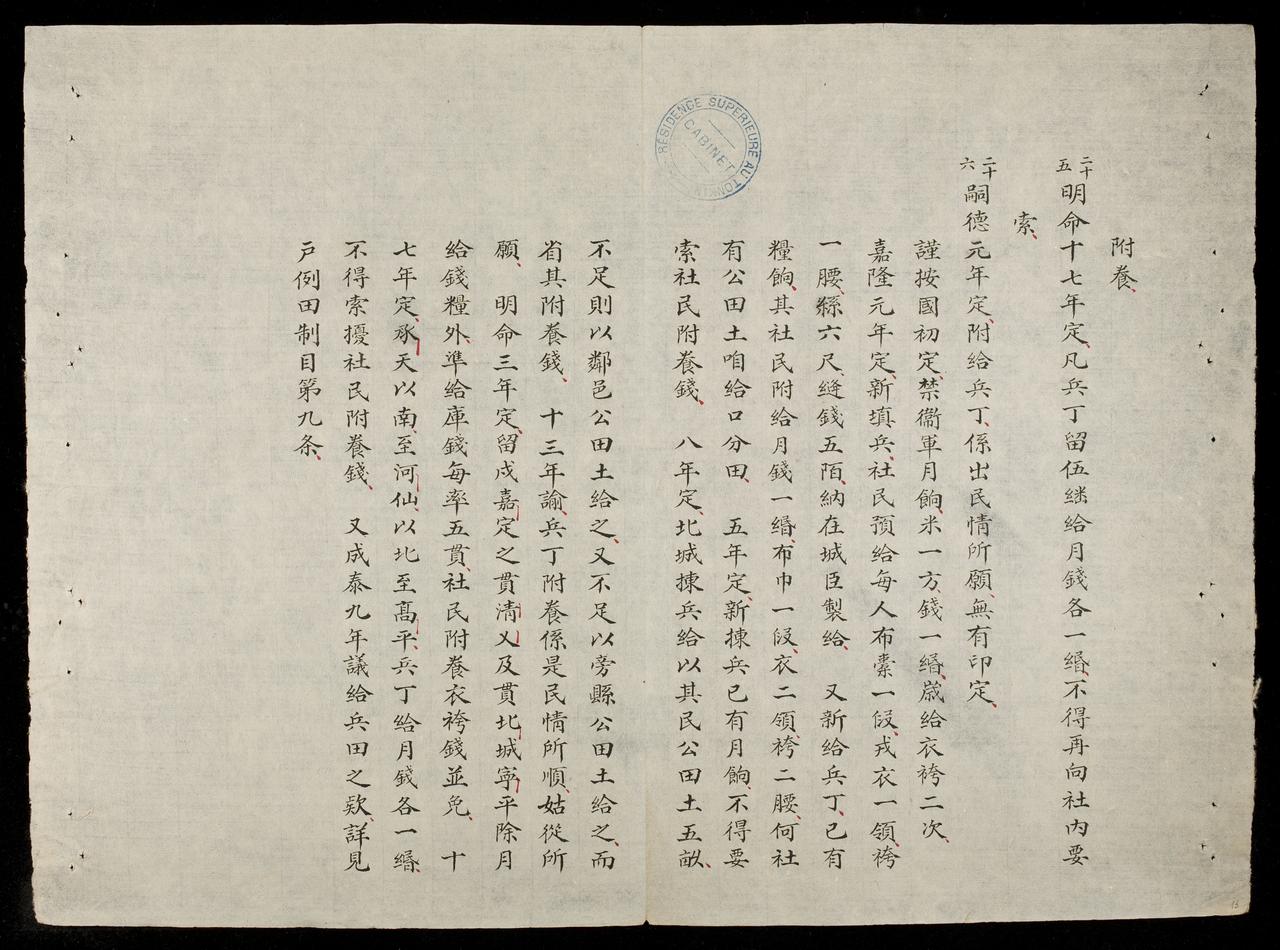 附養、
二十五明命十七年定、凡兵丁留伍継給月錢各一緡、不得再向社內要
索、
二十六嗣德元年定、附給兵丁、係出民情所願、無有印定、
謹按國初定、禁衞軍月餉、米一方、錢一緡、歲給衣袴二次、
嘉隆元年定、新填兵、社民預給每人布橐一假、戎衣一領、袴
一腰、緜六尺、縫錢五陌、納在城臣製給、　又新給兵丁、已有
糧餉、其社民附給月錢一緡、布巾一假、衣二領、袴二腰、何社
有公田土咱給口分田、　五年定、新揀兵已有月餉、不得要
索社民附養錢、　八年定、北城揀兵給以其民公田土五畝、
不足則以鄰邑公田土給之、又不足以旁縣公田土給之、而
省其附養錢、　十三年諭、兵丁附養係是民情所順、姑從所
願、　明命三年定、留戍嘉定之貫清乂及貫北城寧平除月
給錢糧外、準給庫錢每率五貫、社民附養衣袴錢並免、　十
七年定、承天以南、至河仙、以北至高平、兵丁給月錢各一緡、
不得索擾社民附養錢、　又成泰九年議給兵田之欵、詳見
戶例田制目第九条、
RÉSIDENCE SUPÉRIEURE AU TONKIN
CABINET
13